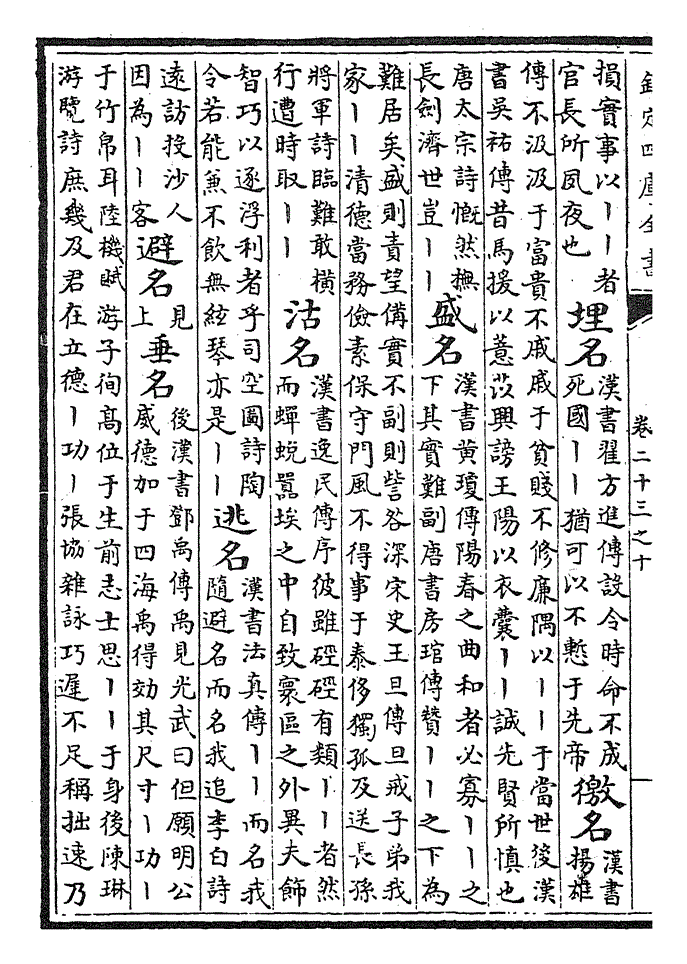 欽定四庫全書
卷二十三之十
損實事以丨丨者
官長所夙夜也
埋名
漢書翟方進傳設令時命不成
死國丨丨猶可以不慙于先帝
徼名
漢書
揚雄
傳不汲汲于富貴不戚戚于貧賤不修廉隅以丨丨于當世後漢
書吳祐傳昔馬援以薏苡興謗王陽以衣囊丨丨誠先賢所慎也
唐太宗詩慨然撫
長劍濟世豈丨丨
盛名
漢書黄瓊傳陽春之曲和者必寡丨丨之
下其實難副唐書房琯傳贊丨丨之下為
難居矣盛則責望備實不副則訾咎深宋史王旦傳旦戒子弟我
家丨丨清德當務儉素保守門風不得事于泰侈獨孤及送長孫
將軍詩臨難敢橫
行遭時取丨丨
沽名
漢書逸民傳序彼雖硜硜有類丨丨者然
而蟬蛻囂埃之中自致寰區之外異夫飾
智巧以逐浮利者乎司空圖詩陶
令若能兼不飲無絃琴亦是丨丨
逃名
漢書法真傳丨丨而名我
隨避名而名我追李白詩
遠訪投沙人
因為丨丨客
避名
見
上
垂名
後漢書鄧禹傳禹見光武曰但願明公
威德加于四海禹得効其尺寸丨功丨
于竹帛耳陸機賦游子徇高位于生前志士思丨丨于身後陳琳
游覽詩庶幾及君在立德丨功丨張協雜詠巧遲不足稱拙速乃